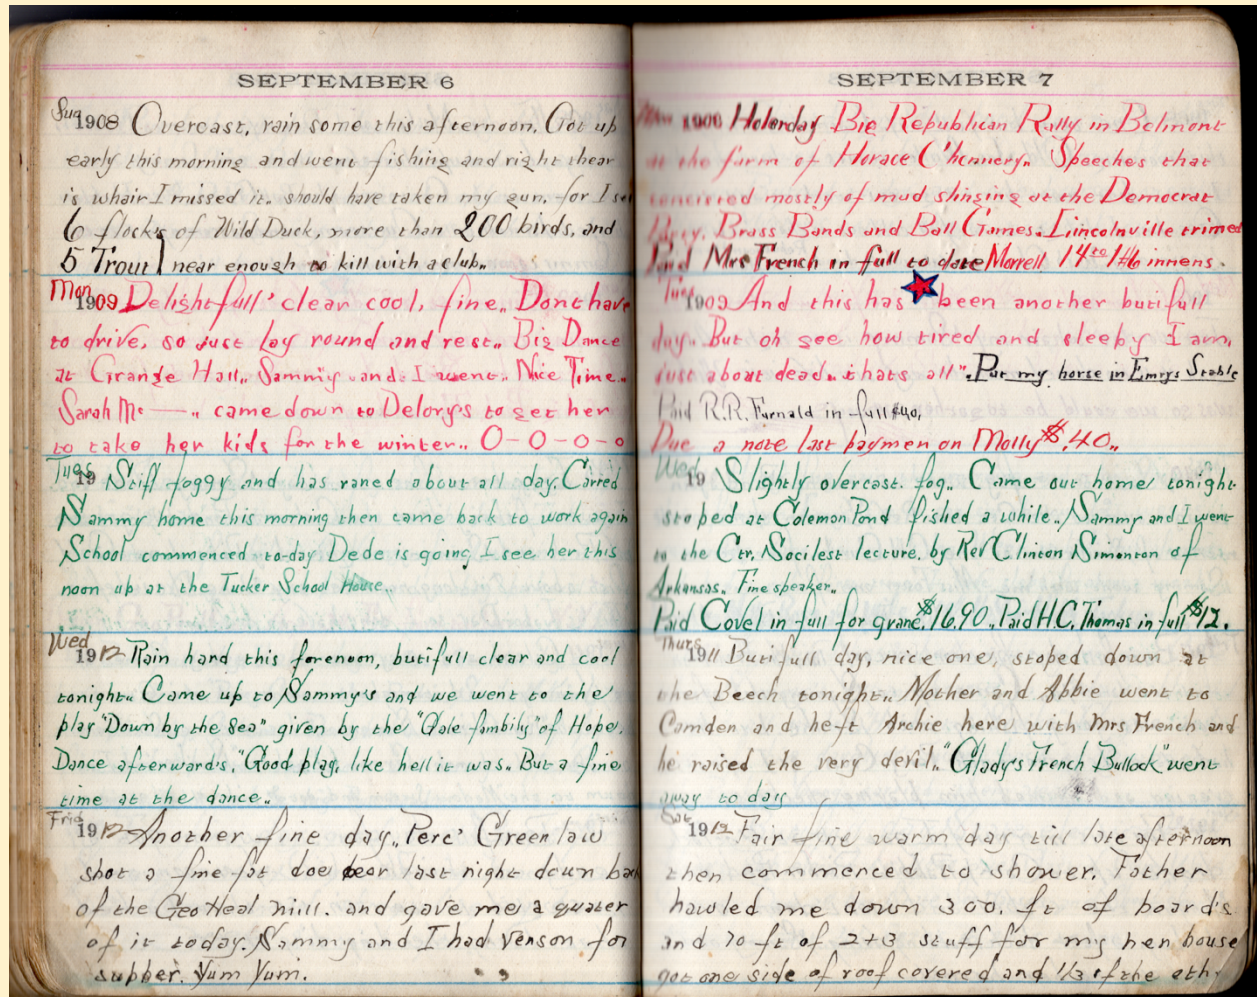 SEPTEMBER 6
Sun 1908 Overcast, rain some this afternoon, Got up
early this morning and went fishing and right thear
is whair I missed it. should have taken my gun, for I se
6 flock's of Wild Duck, more than 200 birds, and
5 Trout near enough to kill with a club..
Mon 1909 Delightfull' clear cool, fine.. Dont have
to drive, so just lay round and rest.. Big Dance
at Grange Hall.. Sammy and I went.. Nice Time..
Sarah Mc — .. came down to Delory's to get her
to take her kids for the winter.. O-O-O-O
Tues 19 Still foggy and has raned about all day. Carred
Sammy home this morning then came back to work again
School commenced to-day Dede is going I see her this
noon up at the Tucker School House..
Wed 1912 Rain hard this forenoon, butifull clear and cool
tonight.. Came up to Sammy's and we went to the
play "Down by the Sea" given by the "Gale fambily" of Hope.
Dance afterward's, "Good play, like hell it was.. But a fine
time at the dance..
Frid 1912 Another fine day.. Perc' Greenlaw
shot a fine fat doe last night down back
of the Geo Heal hill. and gave me a quater
of it today. Sammy and I had Venson for
supper. Yum Yum.
SEPTEMBER 7
Holerday Big Republican Rally in Belmont
at the farm of Horace Chennery.. Speeches that
concisted mostly of mud shinging at the Democrat
Brass Bands and Ball Games. Lincolnville trimed
Paid Mrs French in full to date Morrell 14 to 1 innens.
Tues 1909 And this has been another butifull
day.. But oh gee how tired and sleepy I am,
just about dead.. thats all". Put my horse in Emrys Stable
Paid R.R. Furnald in full $40,
Due a note last paymen on Molly $.40..
Wed 19 Slightly overcast. fog.. Came out home tonight
stoped at Colemon Pond fished a while.. Sammy and I went
to the Ctr. Socilest lecture. by Rev Clinton Simonton of
Arkansas.. Fine speaker..
Paid Covel in full for grane. $16.90.. Paid H.C. Thomas in full $12.
Thurs 1911 Butifull day, nice one, stoped down at
the Beech tonight.. Mother and Abbie went to
Camden and left Archie here with Mrs French and
he raised the very devil.. "Glady's French Bullock" went
away to day
Sat 1912 Fair fine warm day till late afternoon
then commenced to shower. Father
hawled me down 300. ft of board's
and 70 ft of 2+3 stuff for my hen house
got one side of roof covered and 1/3 of the oth